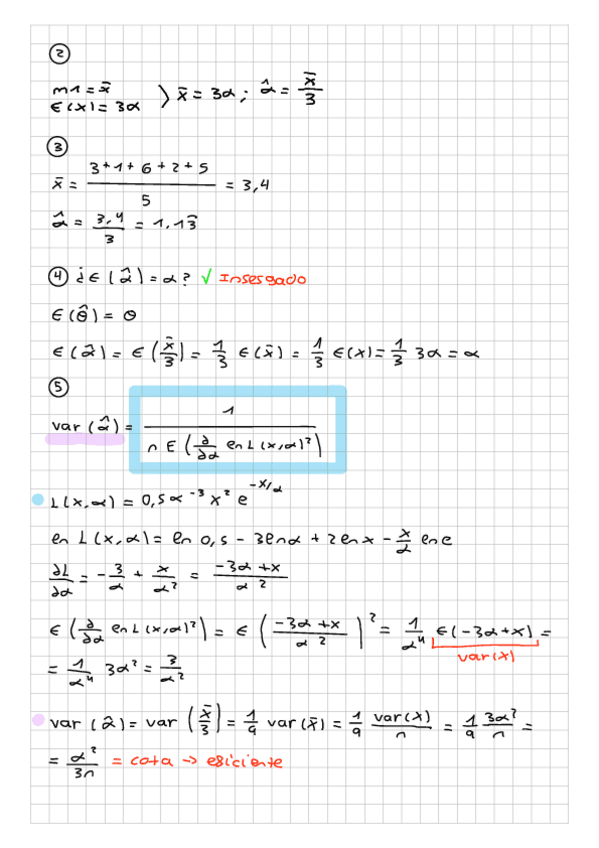 ②
m1 = x̄
E(x) = 3α 〉 x̄ = 3α ; α̂ = x̄/3
③
x̄ = (3+1+6+2+5)/5 = 3,4
α̂ = 3,4/3 = 1,13̄
④ ¿E(α̂) = α? √ Insesgado
E(θ̂) = θ
E(α̂) = E(x̄/3) = 1/3 E(x̄) = 1/3 E(x) = 1/3 3α = α
⑤
var(α̂) = 1/(n E(∂/∂α ln L(x,α)²))
L(x,α) = 0,5 α⁻³ x² e^(-x/α)
ln L(x,α) = ln 0,5 - 3lnα + 2lnx - x/α ln e
∂L/∂α = -3/α + x/α² = (-3α+x)/α²
E(∂/∂α ln L(x,α)²) = E((-3α+x)/α²)² = 1/α⁴ E(-3α+x) =
var(x)
= 1/α⁴ 3α² = 3/α²
var(α̂) = var(x̄/3) = 1/9 var(x̄) = 1/9 var(x)/n = 1/9 3α²/n =
= α²/3n = cota → eficiente